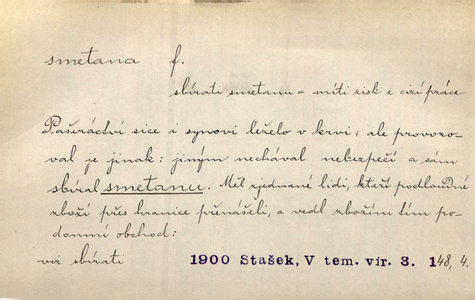 smetana f.
sbírati smetanu = míti zisk z cizí práce
Pašeráctví sice i synovi leželo v krvi; ale provozo-
val je jinak: jiným nechával nebezpečí a sám
sbíral smetanu. Měl zjednané lidi, kteří podloudné
zboží přes hranice přenášeli, a vedl zbožím tím po-
domní obchod:
viz sbírati 1900 Stašek, V tem. vír. 3. 148, 4.